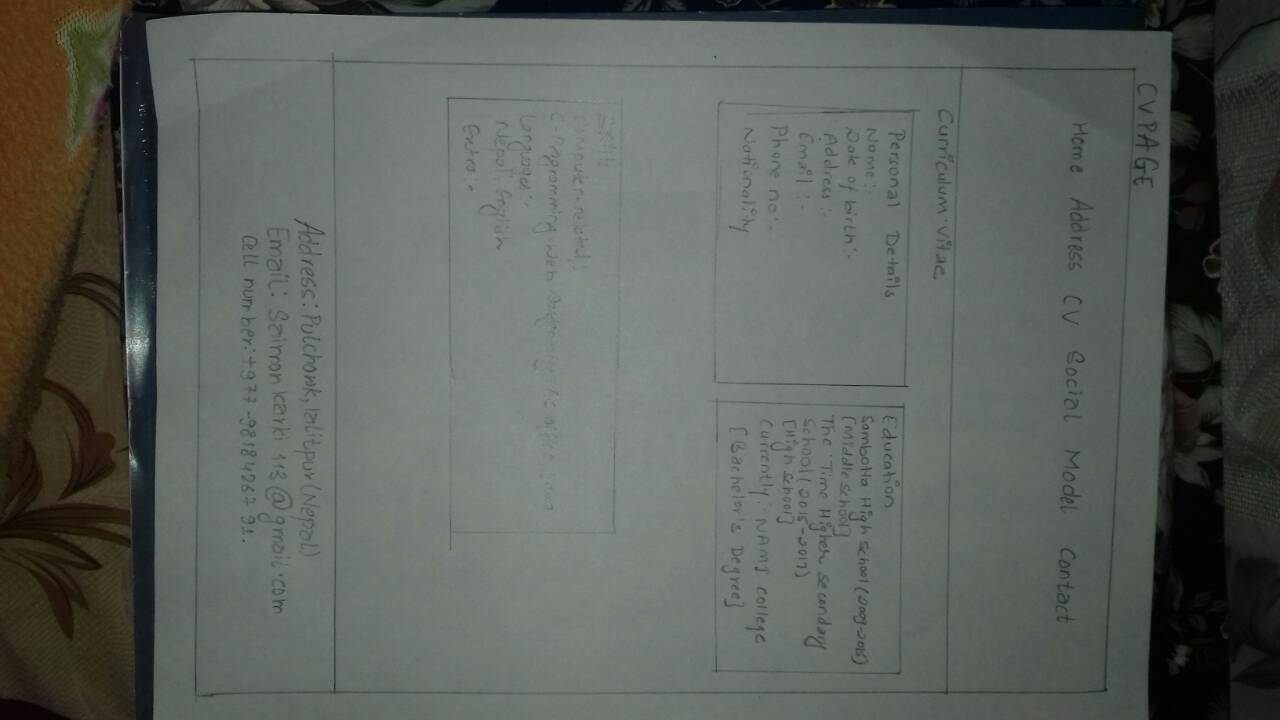 CV PAGE
Home Address CV Social Model Contact
Curriculum vitae
Personal Details
Name:-
Date of birth:-
Address:-
Email:-
Phone no:-
Nationality
Education
Sambotta High school (2009-2015)
[Middle school]
The Time Higher secondary
school (2015-2017)
[High school]
Currently:- NAMI college
[Bachelor's Degree]
Skill
Computer related:
C-Programming, web designing,
Language:-
nepali, English
Extra:-
Address: Pulchowk, lalitpur (Nepal)
Email: Saimon karki 113@gmail.com
Cell number: +977-9818426792.